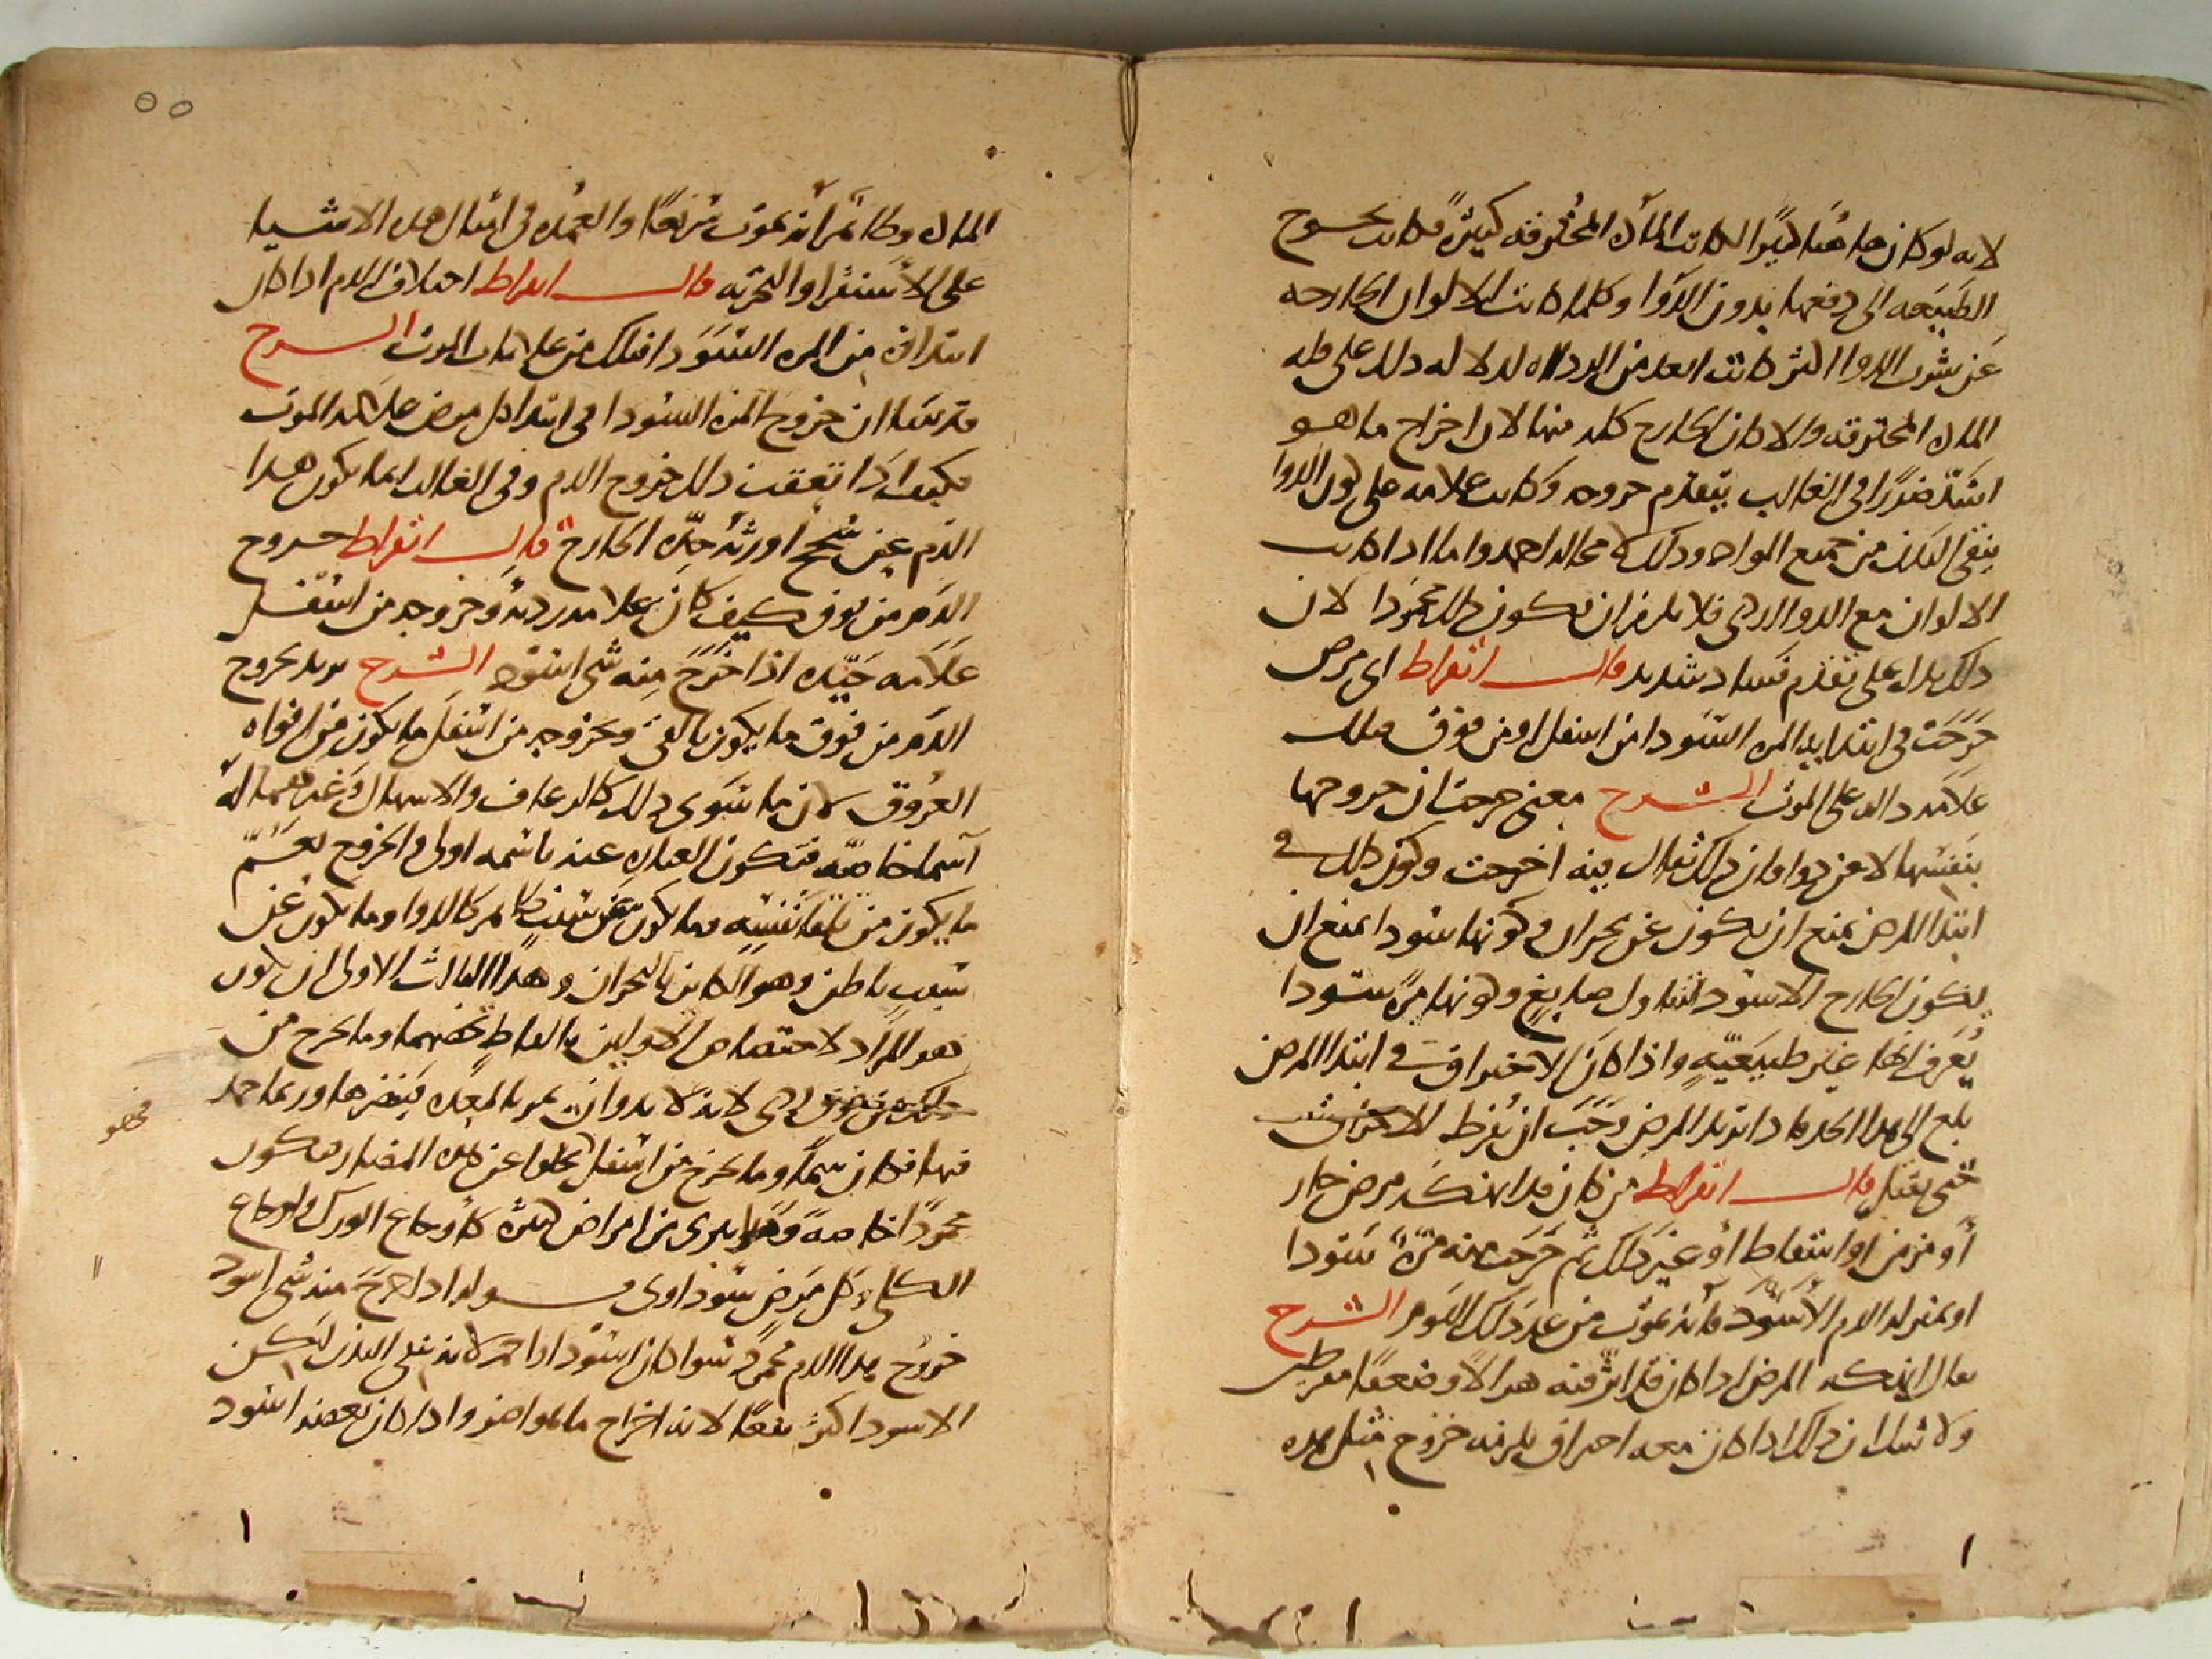 لانه لو كان هاهنا كبيرًا لكانت المادة المحترقة كثيرة فكانت تحوج
الطبيعة الى دفعها بدون الدوا وكلما كانت الالوان الخارجه
عن شرب الدوا اكثر كانت ابعد من الرداه لدلالة ذلك على قله
الماده المحترقه والا كان الخارج كله منها لان اخراج ما هو
اشد ضررًا في الغالب يتقدم خروجه وكانت علامه على كون الدوا
ينقى البدن من جميع المواد وذلك لا محاله احمد واما اذا كانت
الالوان مع الدوا الردى فلا يلزم ان يكون ذلك محمودا لان
ذلك يدل على تقدم فساد شديد قال ابقراط اى مرض
خرجت في ابتدايه المره السودا من اسفل او من فوق فذلك
علامه داله على الموت الشرح معنى خرجت ان خروجها
بنفسها لا عن دوا فان ذلك يقال فيه اخرجت وكون ذلك في
ابتدا المرض يمنع ان يكون عن بحران وكونها سودا يمنع ان
يكون الخارج الاسود لتناول صابغ وكونها مره سودا
يعرف انها غير طبيعيه واذا كان الاحتراق في ابتدا المرض
بلغ الى هذا الحد فاذا تزيد المرض وجب ان يفرط الاحتراق
حتى يقتل قال ابقراط من كان قد انهكه مرض حار
أو مزمن او اسقاط أو غير ذلك ثم خرجت منه مره سودا
او بمنزلة الدم الاسود فانه يموت من غد ذلك اليوم الشرح
يقال انهكه المرض اذا كان قد اثر فيه هزالا وضعفا مفرطين
ولا شك ان ذلك اذا كان معه احتراق يلزمه خروج مثل هذه
الماده وكان من أنه يموت سريعًا والعمده في امثال هذه الاشيا
على الاستقرا والتجربه قال ابقراط اختلاف الدم اذا كان
ابتداؤه من المره السودا فتلك من علامات الموت الشرح
قد بينا ان خروج المره السودا في ابتدا كل مرض علامه الموت
فكيف اذا تعقب ذلك خروج الدم وفي الغالب انما يكون هذا
الدم عن سحج اورثه حده الخارج قال ابقراط خروج
الدم من فوق كيف كان علامه رديه وخروجه من اسفل
علامه جيده اذا خرج منه شي اسود الشرح يريد بخروج
الدم من فوق ما يكون بالقي وبخروجه من اسفل ما يكون من افواه
العروق لان ما سوى ذلك كالرعاف والاسهال وغيرهما له
أسما خاصه فتكون العباره عنه باسمه اولى والخروج يعم
ما يكون من تلقا نفسه وما يكون عن سبب ظاهر كالدوا وما يكون عن
سبب باطن وهو الكاين بالبحران وهذا الثالث الاولى ان يكون
هو المراد لاختصاص الاولين بالفاظ تخصهما وما يخرج من
فوق فهو ردى لانه لا بد وان يمر بالمعده فيضرها وربما جمد
فيها فكان سمًا وما يخرج من اسفل يخلوا عن هذه المضار فيكون
محمودًا خاصة وقد يبرى من امراض كثيره كأوجاع الورك واوجاع
الكلى وكل مرض سوداوى قوله اذا خرج منه شي اسود
خروج هذا الدم محمود سوا كان اسود او احمر لانه ينقى البدن لكن
الاسود اكثر نفعًا لانه اخراج ما هو اضر واذا كان بعضه اسود